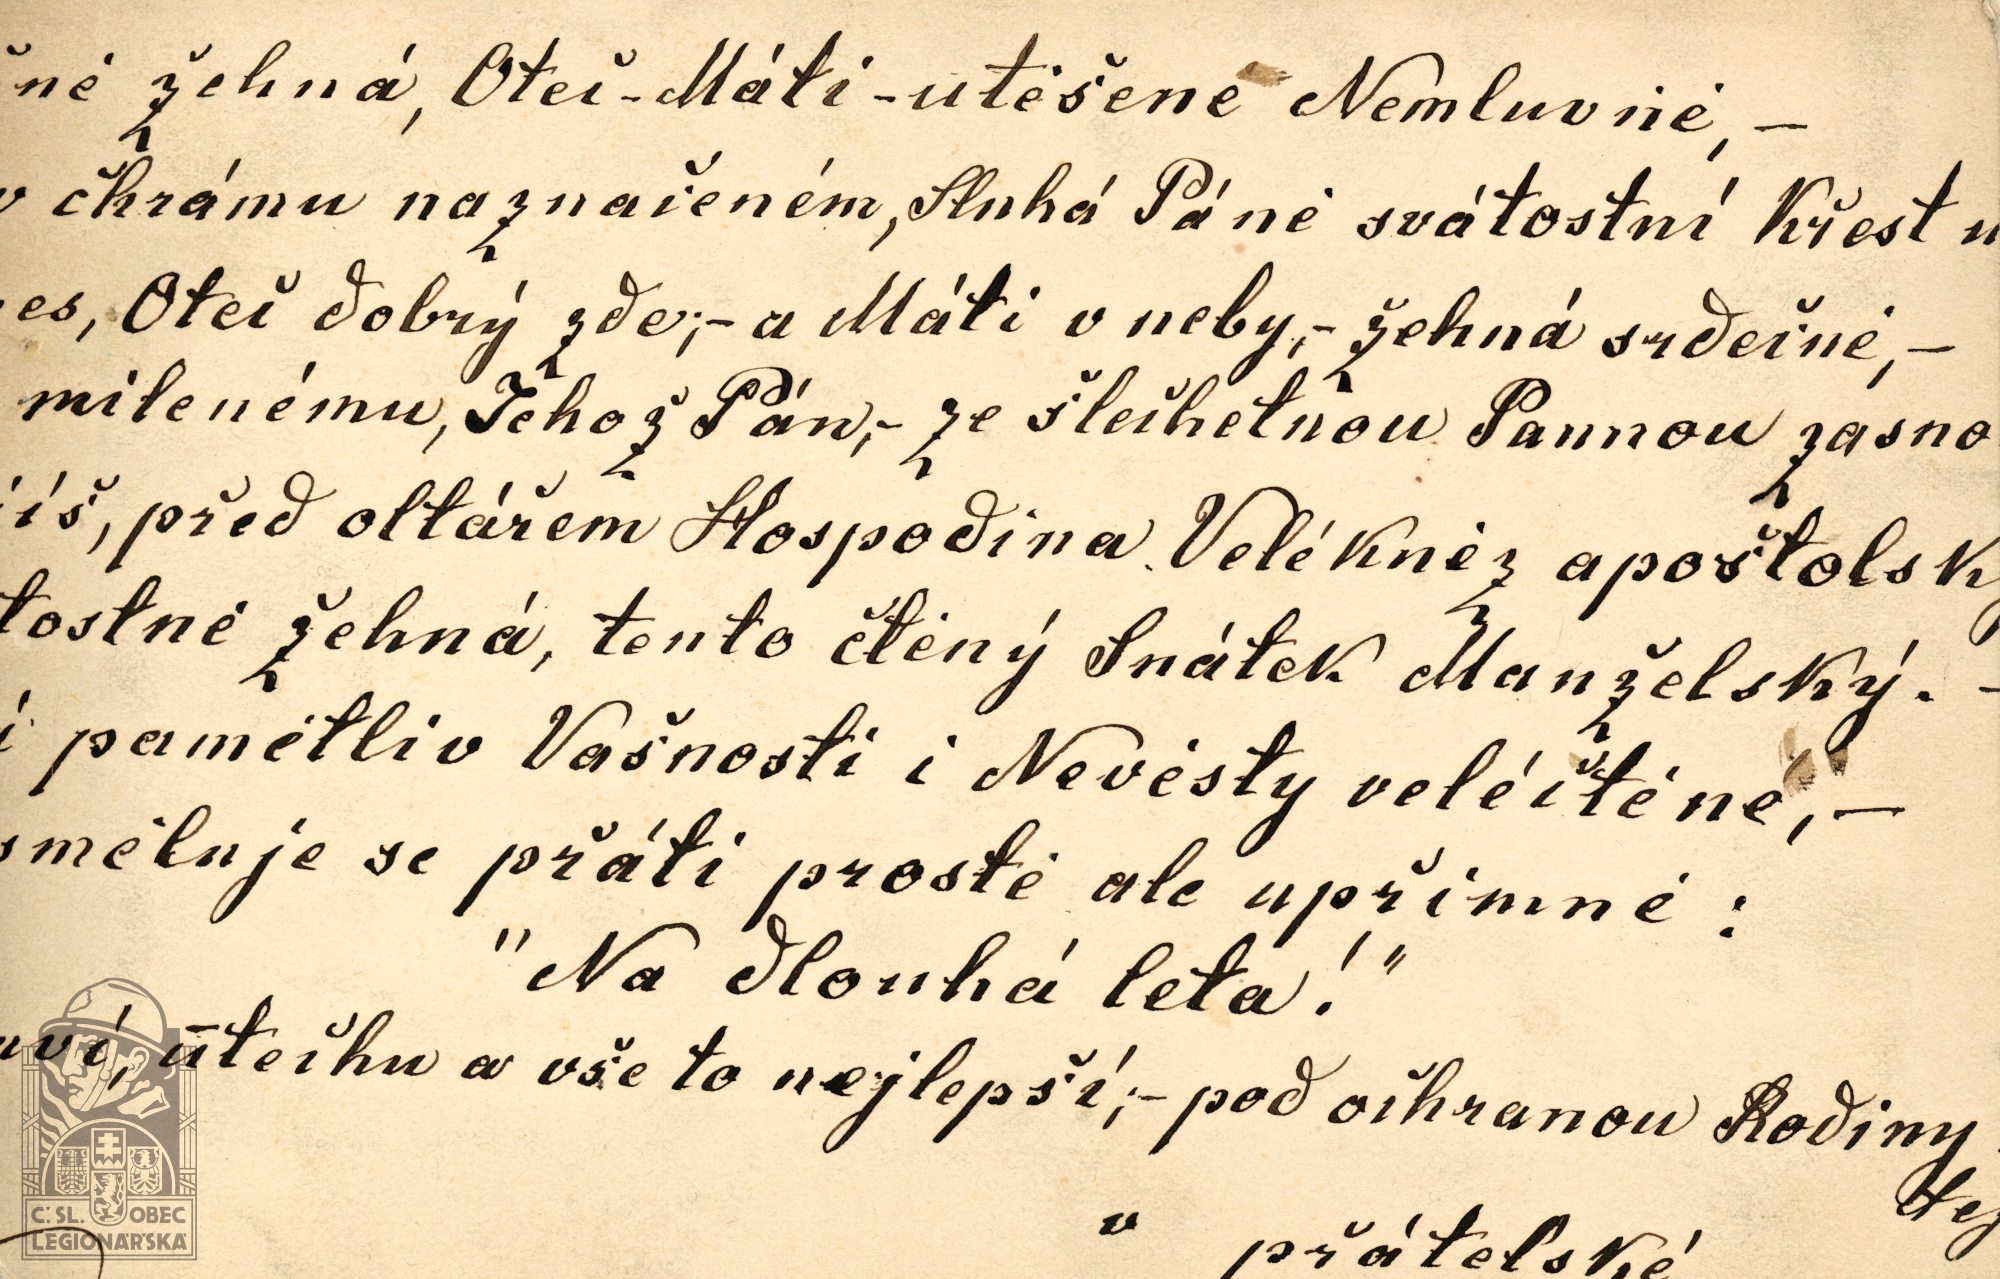 né žehná, Oteč-Máti-utěšené Nemluvně,-
v chrámu naznačeném, Sluhá Páně svátostní Křest u
es, Oteč dobrý zde;- a Máti v neby,- žehná srdečně,-
milenému, Jehož Pán,- ze šlechetnou Pannou zasno
íš, před oltářem Hospodina Velékněz apoštolsk
tostně žehná, tento čtěný Snátek Manželský.-
i pamětliv Vašnosti i Nevěsty veléčtěné,-
směluje se přáti prostě ale upřímně:
"Na dlouhá léta!"
aví, útěchu a vše to nejlepší;- pod ochranou Rodiny
v přátelské
Č. SL. OBEC
LEGIONÁŘSKÁ